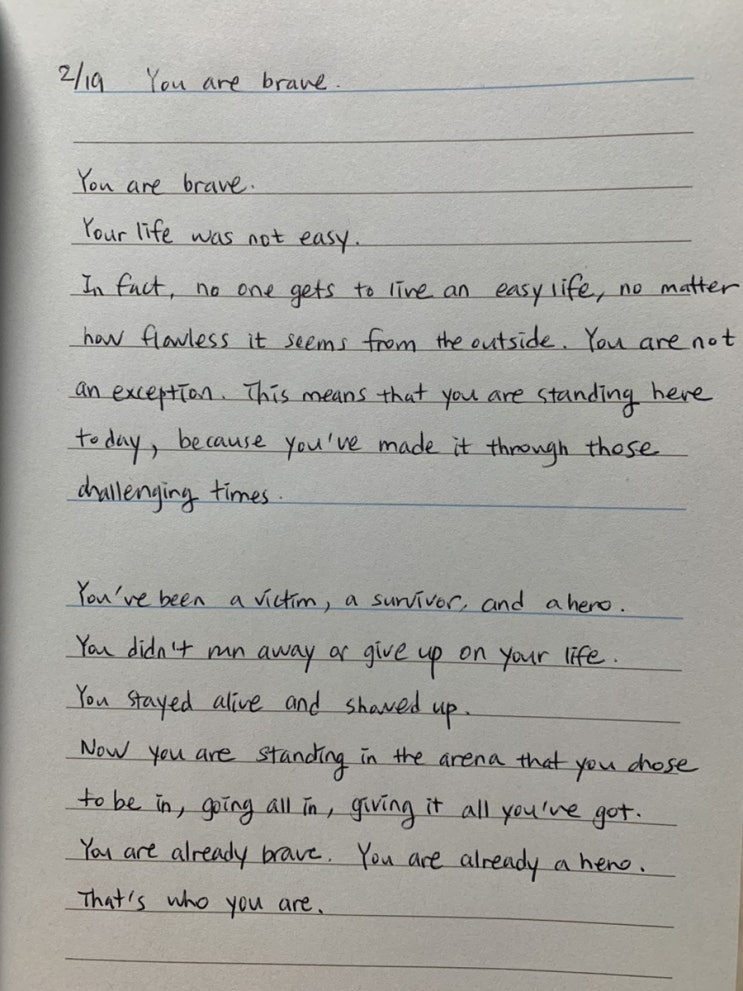 2/19 You are brave.
You are brave.
Your life was not easy.
In fact, no one gets to live an easy life, no matter
how flawless it seems from the outside. You are not
an exception. This means that you are standing here
today, because you've made it through those
challenging times.
You've been a victim, a survivor, and a hero.
You didn't run away or give up on your life.
You stayed alive and showed up.
Now you are standing in the arena that you chose
to be in, going all in, giving it all you've got.
You are already brave. You are already a hero.
That's who you are.